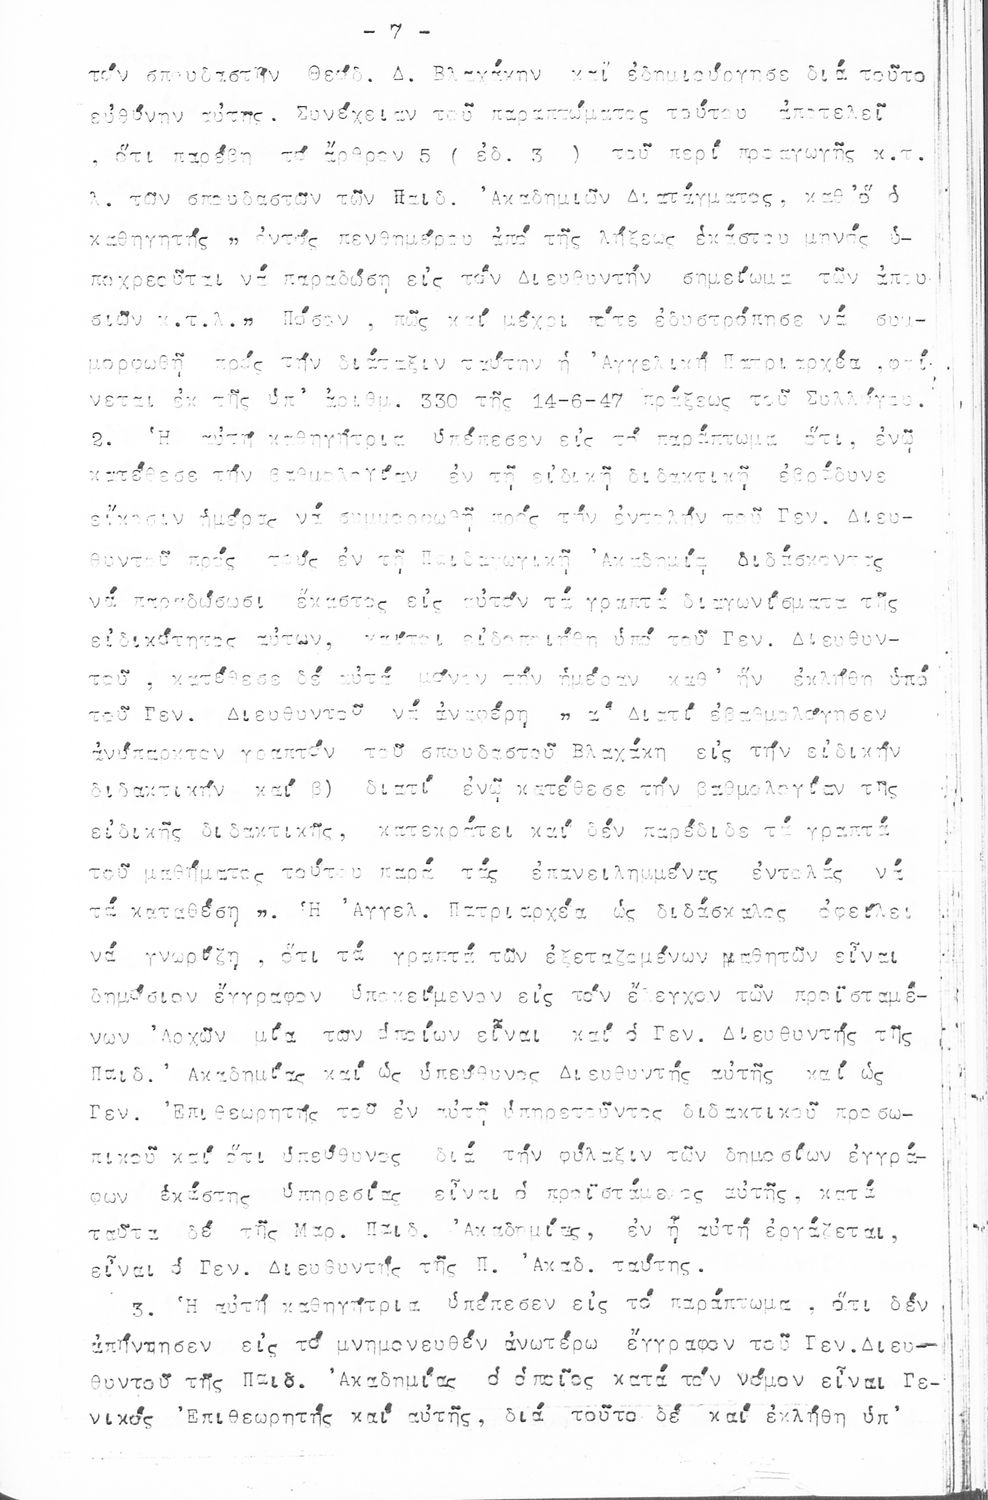 - 7 -
τόν σπουδαστήν Θεόδ. Δ. Βλαχάκην καί ἐδημιούργησε διά τοῦτο
εὐθύνην αὐτης. Συνέχειαν τοῦ παραπτώματος τούτου ἀποτελεῖ
, ὅτι παρέβη τό ἄρθρον 5 ( ἐδ. 3 ) τοῦ περί προαγωγῆς κ.τ.
λ. τῶν σπουδαστῶν τῶν Παιδ. Ἀκαδημιῶν Διατάγματος, καθ'ὅ ὁ
καθηγητής " ἐντός πενθημέρου ἀπό τῆς λήξεως ἑκάστου μηνός ὑ-
ποχρεοῦται νά παραδώση εἰς τόν Διευθυντήν σημείωμα τῶν ἀπου-
σιῶν κ.τ.λ." Πόσον , πῶς καί μέχρι πότε ἐδυστρόπησε νά συμ-
μορφωθῇ πρός τήν διάταξιν ταύτην ἡ Ἀγγελική Πατριαρχέα ,φαί-
νεται ἐκ τῆς ὑπ' ἀριθμ. 330 τῆς 14-6-47 πράξεως τοῦ Συλλόγου.
2. Ἡ αὐτή καθηγήτρια ὑπέπεσεν εἰς τό παράπτωμα ὅτι, ἐνῷ
κατέθεσε τήν βαθμολογίαν ἐν τῇ εἰδικῇ διδακτικῇ ἐβράδυνε
εἴκοσιν ἡμέρας νά συμμορφωθῇ πρός τήν ἐντολήν τοῦ Γεν. Διευ-
θυντοῦ πρός τούς ἐν τῇ Παιδαγωγικῇ Ἀκαδημίᾳ διδάσκοντας
νά παραδώσωσι ἕκαστος εἰς αὐτόν τά γραπτά διαγωνίσματα τῆς
εἰδικότητος αὐτων, καίτοι εἰδοποιήθη ὑπό τοῦ Γεν. Διευθυν-
τοῦ , κατέθεσε δέ αὐτά μόνον τήν ἡμέραν καθ' ἥν ἐκλήθη ὑπό
τοῦ Γεν. Διευθυντοῦ νά ἀναφέρῃ " α' Διατί ἐβαθμολόγησεν
ἀνύπαρκτον γραπτόν τοῦ σπουδαστοῦ Βλαχάκη εἰς τήν εἰδικήν
διδακτικήν καί β) διατί ἐνῷ κατέθεσε τήν βαθμολογίαν τῆς
εἰδικῆς διδακτικῆς, κατεκράτει καί δέν παρέδιδε τά γραπτά
τοῦ μαθήματος τούτου παρά τάς ἐπανειλημμένας ἐντολάς νά
τά καταθέσῃ ". Ἡ Ἀγγελ. Πατριαρχέα ὡς διδάσκαλος ὀφείλει
νά γνωρίζῃ , ὅτι τά γραπτά τῶν ἐξεταζομένων μαθητῶν εἶναι
δημόσιον ἔγγραφον ὑποκείμενον εἰς τόν ἔλεγχον τῶν προϊσταμέ-
νων Ἀρχῶν μία των ὁποίων εἶναι καί ὁ Γεν. Διευθυντής τῆς
Παιδ.' Ακαδημίας καί ὡς ὑπεύθυνος Διευθυντής αὐτῆς καί ὡς
Γεν. Ἐπιθεωρητής τοῦ ἐν αὐτῇ ὑπηρετοῦντος διδακτικοῦ προσω-
πικοῦ καί ὅτι ὑπεύθυνος διά τήν φύλαξιν τῶν δημοσίων ἐγγρά-
φων ἑκάστης ὑπηρεσίας εἶναι ὁ προϊστάμενος αὐτῆς, κατά
ταῦτα δέ τῆς Μαρ. Παιδ. Ἀκαδημίας, ἐν ᾗ αὐτή ἐργάζεται,
εἶναι ὁ Γεν. Διευθυντής τῆς Π. Ἀκαδ. ταύτης.
3. Ἡ αὐτή καθηγήτρια ὑπέπεσεν εἰς τό παράπτωμα , ὅτι δέν
ἀπήντησεν εἰς τό μνημονευθέν ἀνωτέρω ἔγγραφον τοῦ Γεν.Διευ-
θυντοῦ τῆς Παιδ. Ἀκαδημίας ὁ ὁποῖος κατά τόν νόμον εἶναι Γε-
νικός Ἐπιθεωρητής καί αὐτῆς, διά τοῦτο δέ καί ἐκλήθη ὑπ'